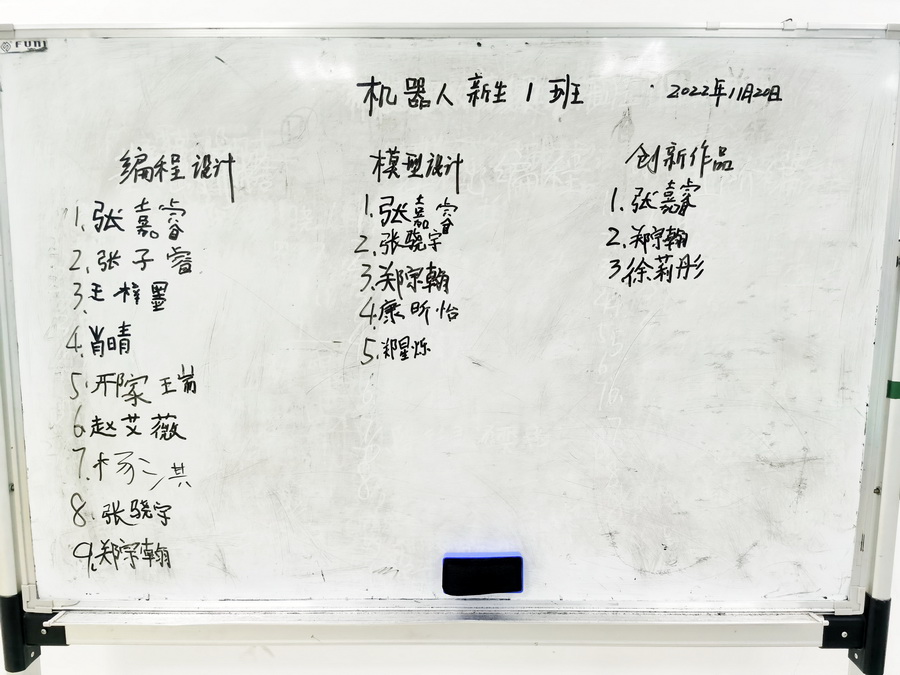 FUNI
机器人新生1班
2022年11月20日
编程设计
1.张嘉睿
2.张子睿
3.王梓墨
4.肖晴
5.邢家瑞
6.赵艾薇
7.杨洪
8.张骁宇
9.郑宗翰
模型设计
1.张嘉睿
2.张骁宇
3.郑宗翰
4.康昕怡
5.郑星烁
创新作品
1.张嘉睿
2.郑宗翰
3.徐莉彤